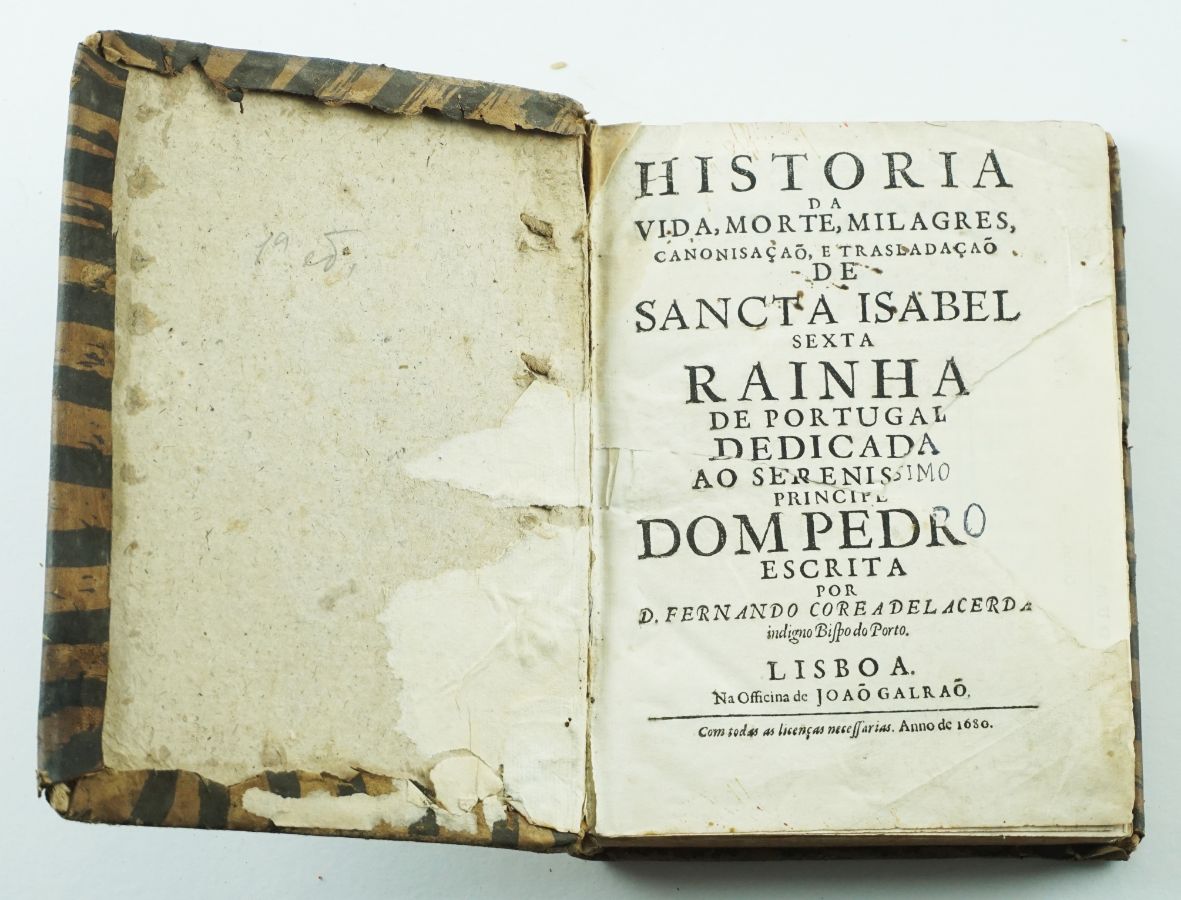 1ª ed.
HISTORIA
DA
VIDA, MORTE, MILAGRES,
CANONISAÇAÕ, E TRASLADAÇAÕ
DE
SANCTA ISABEL
SEXTA
RAINHA
DE PORTUGAL
DEDICADA
AO SERENISSIMO
PRINCIPE
DOM PEDRO
ESCRITA
POR
D. FERNANDO COREA DE LACERDA
indigno Biſpo do Porto.
LISBOA.
Na Officina de JOAÕ GALRAÕ.
Com todas as licenças neceſſarias. Anno de 1680.